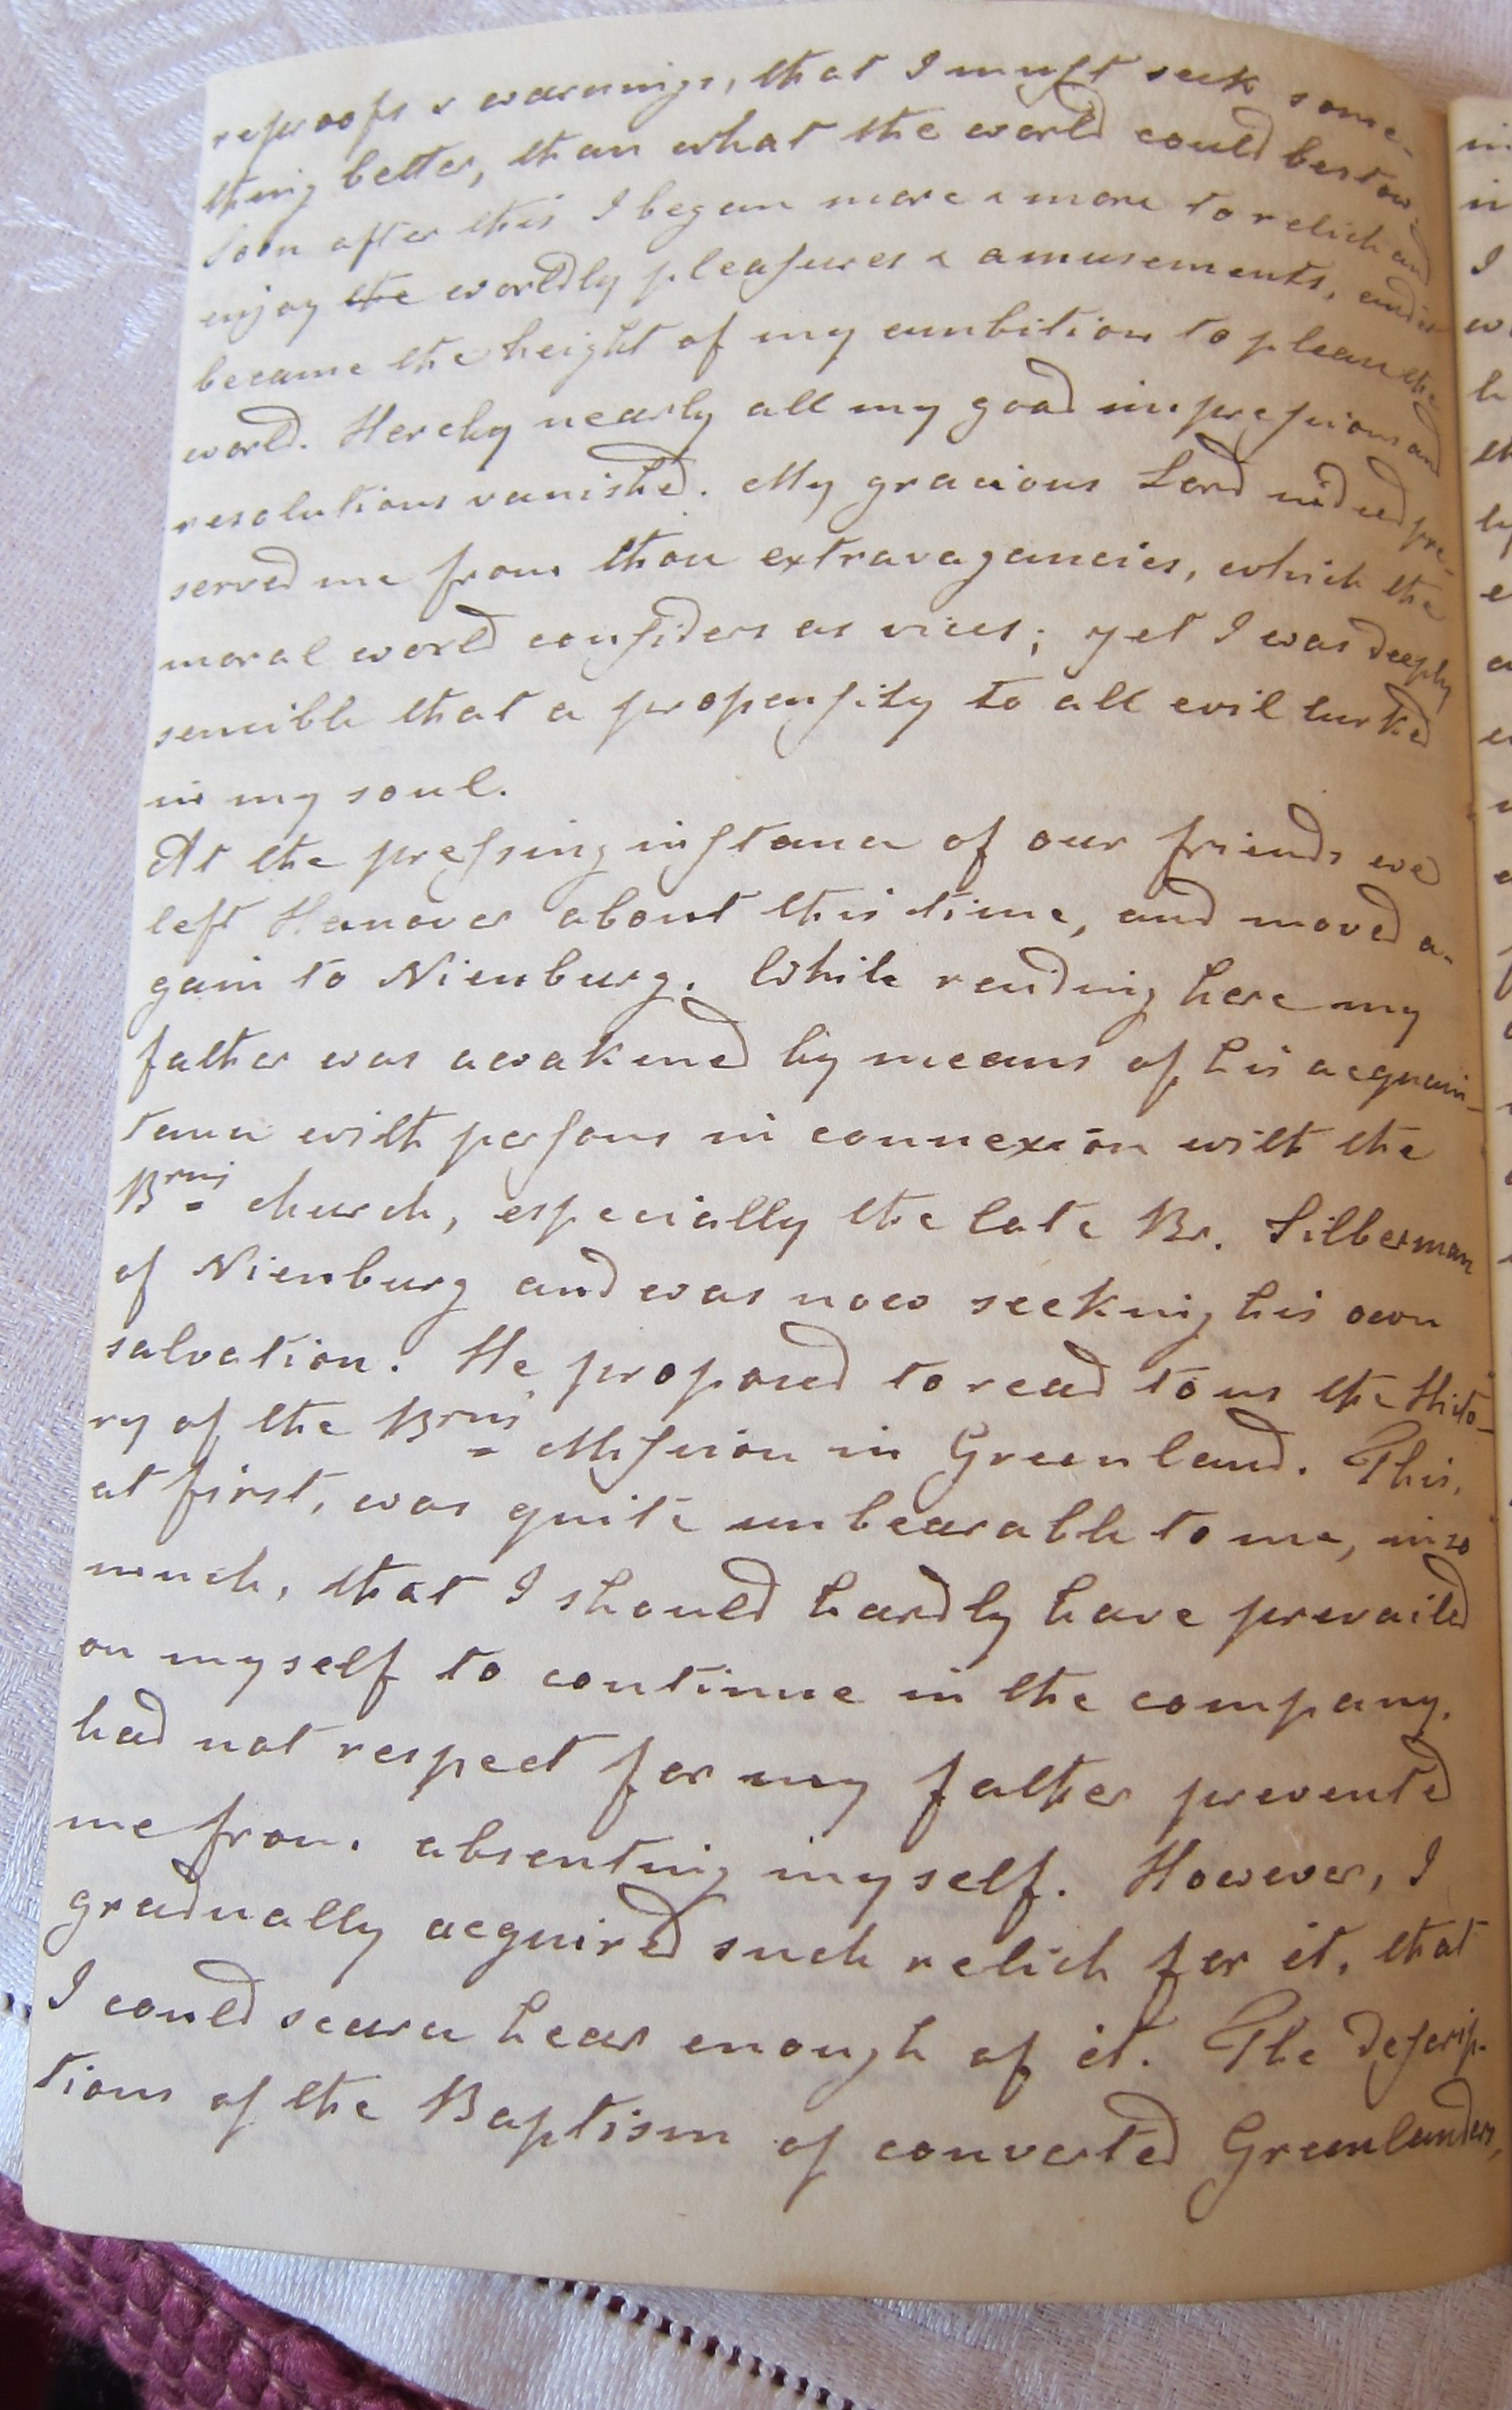 reproofs & warnings, that I must seek some-
thing better, than what the world could bestow.
Soon after this I began more & more to relish and
enjoy the worldly pleasures & amusements, and it
became the height of my ambition to please the
world. Hereby nearly all my good impressions and
resolutions vanished. My gracious Lord indeed pre-
served me from those extravagancies, which the
moral world considers as vices; yet I was deeply
sensible that a propensity to all evil lurked
in my soul.
At the pressing instance of our friends we
left Hanover about this time, and moved a-
gain to Nienburg. While residing here my
father was awakened by means of his acquain-
tance with persons in connexion with the
Brns church, especially the late Br. Silberman
of Nienburg and was now seeking his own
salvation. He proposed to read to us the Histo-
ry of the Brns' Mission in Greenland. This,
at first, was quite unbearable to me, inso
much, that I should hardly have prevailed
on myself to continue in the company,
had not respect for my father prevented
me from absenting myself. However, I
gradually acquired such relish for it, that
I could scarce hear enough of it. The descrip-
tions of the Baptism of converted Greenlanders,